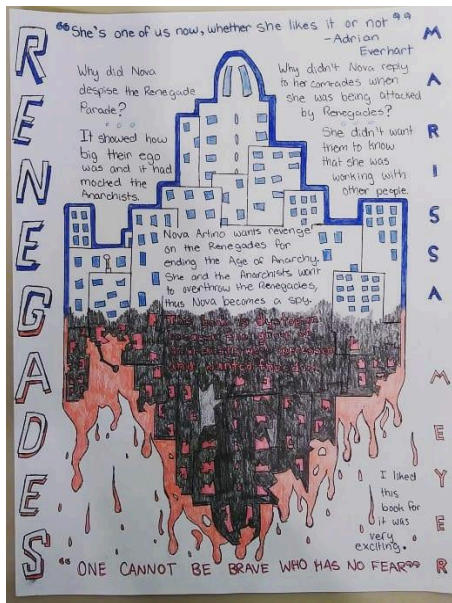 RENEGADES
"She's one of us now, whether she likes it or not"
-Adrian
Everhart
MARISSA MEYER
Why did Nova
despise the Renegade
Parade?
It showed how
big their ego
was and it had
mocked the
Anarchists.
Why didn't Nova reply
to her comrades when
she was being attacked
by Renegades?
She didn't want
them to know
that she was
working with
other people.
Nova Artino wants revenge
on the Renegades for
ending the Age of Anarchy.
She and the Anarchists want
to overthrow the Renegades,
thus Nova becomes a spy.
This book is dystopia
I liked
this
book for
it was
very
exciting.
"ONE CANNOT BE BRAVE WHO HAS NO FEAR"